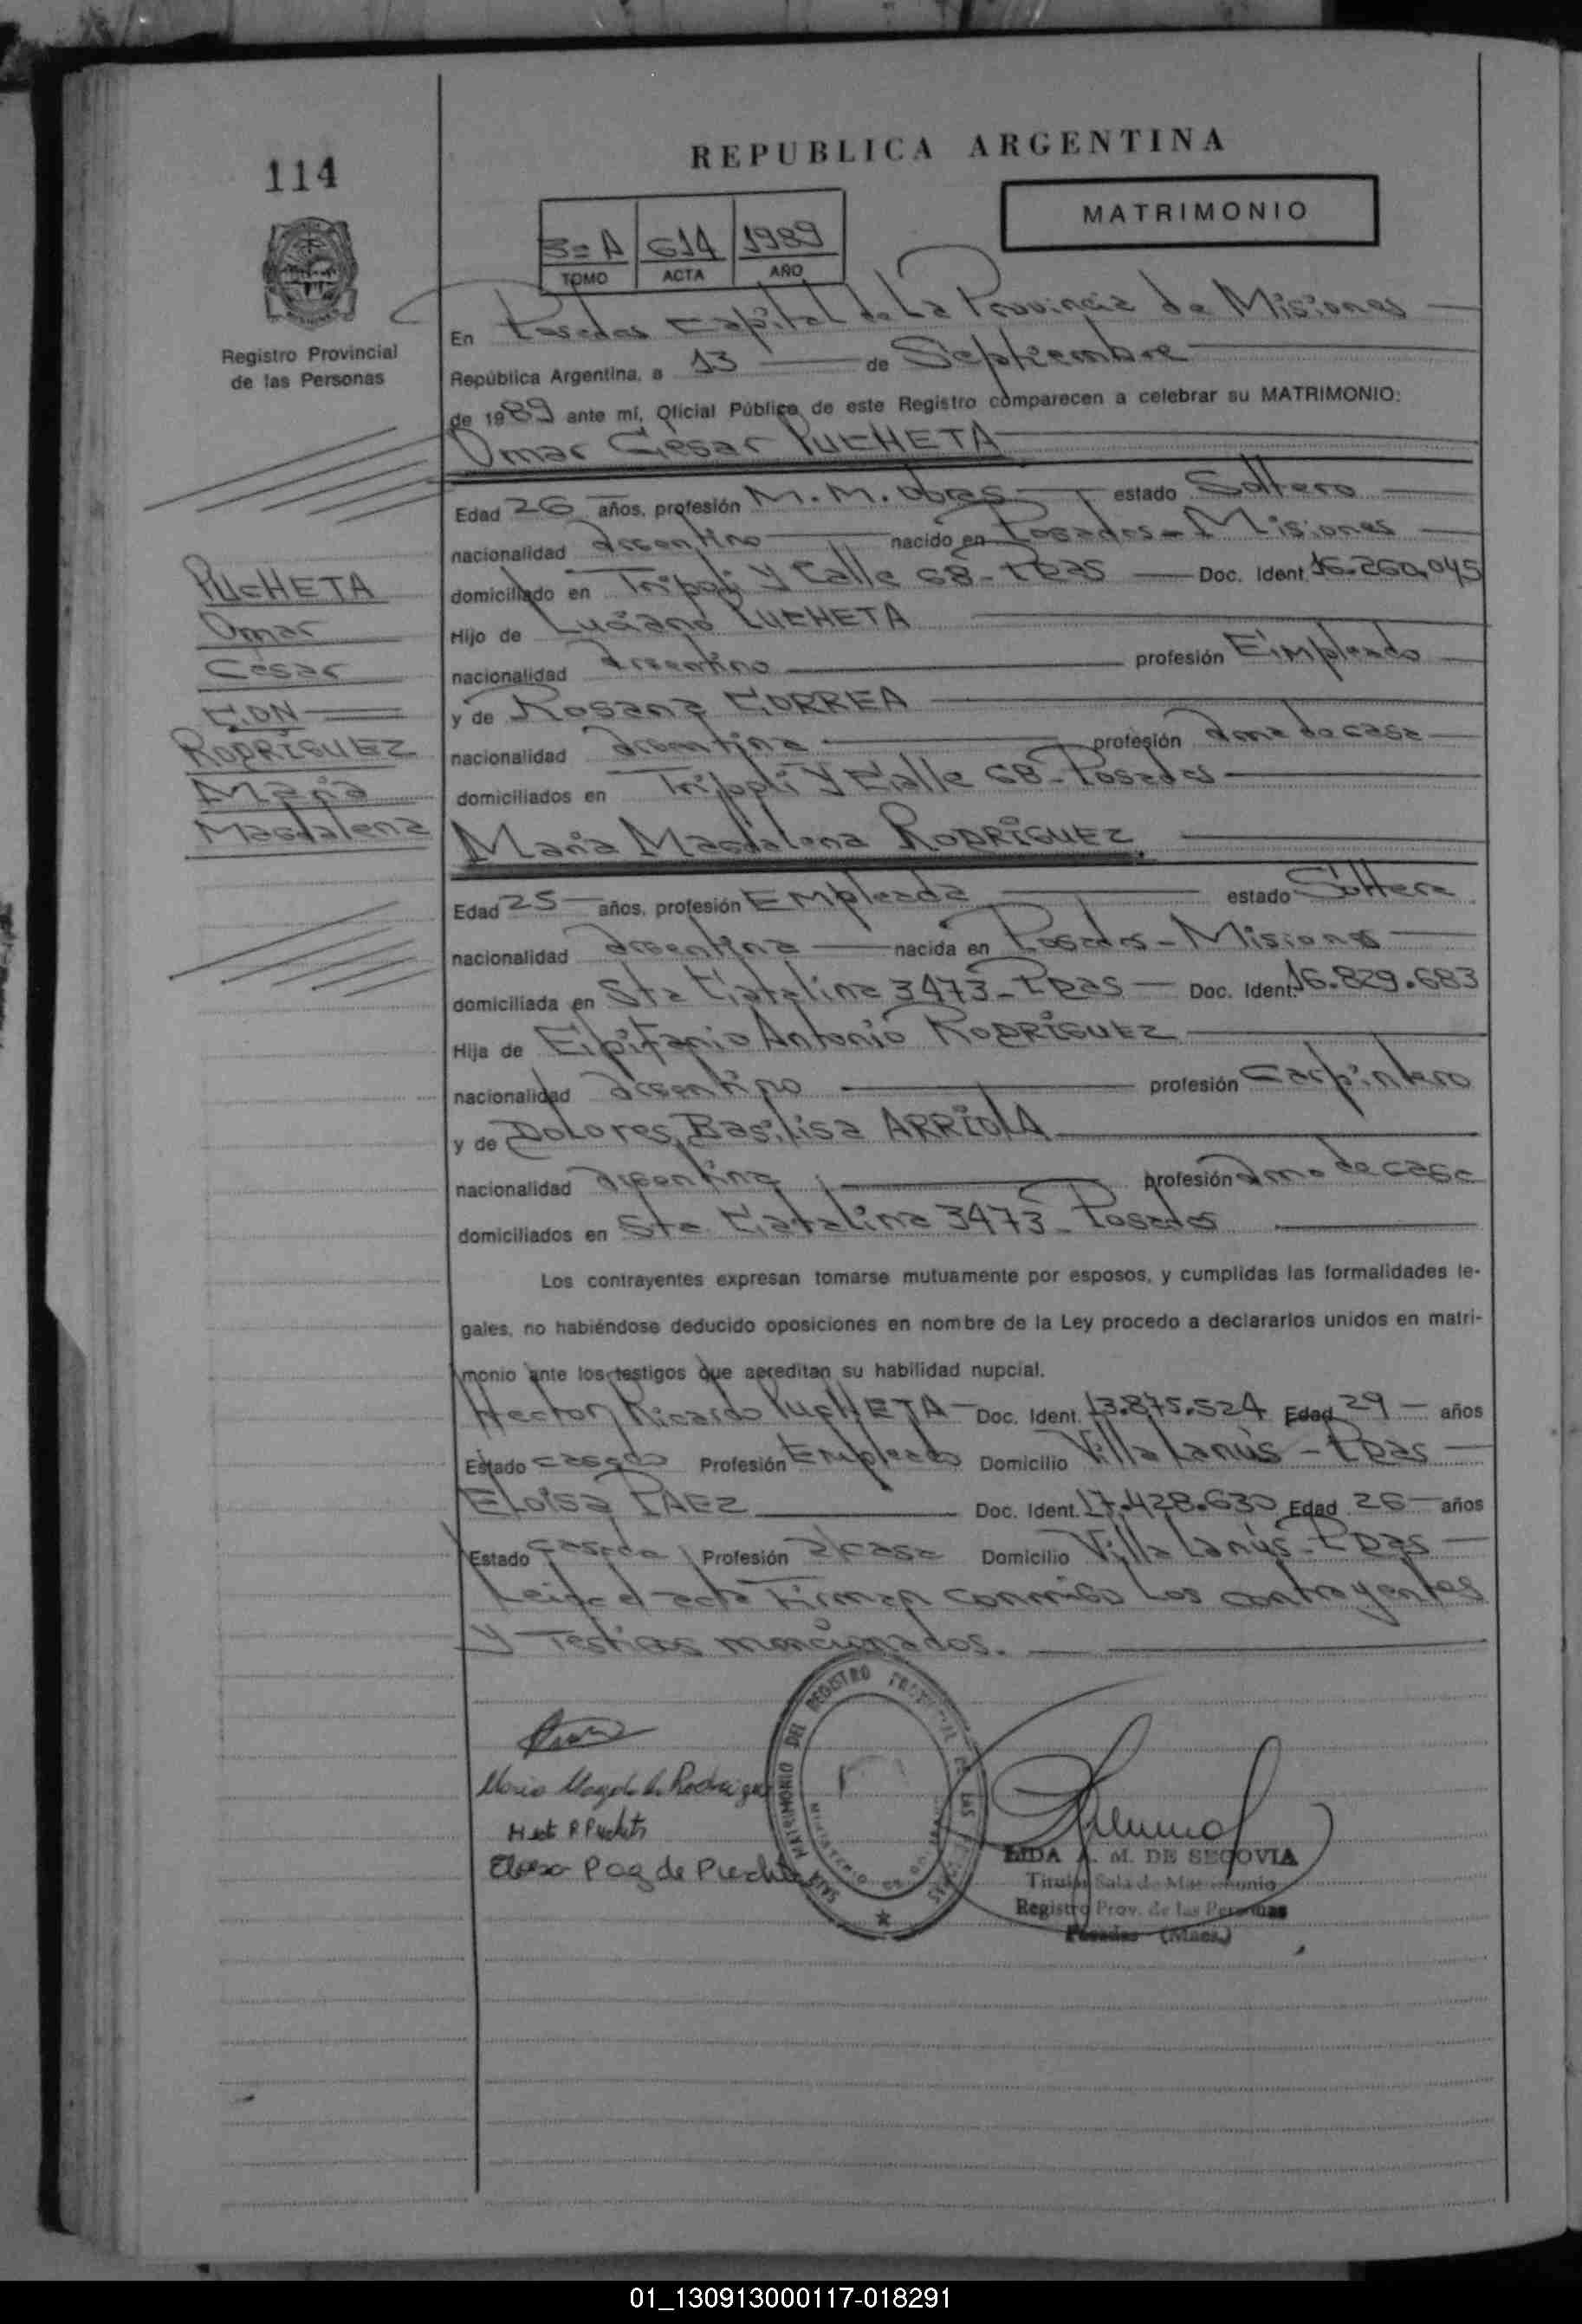 114
REPUBLICA ARGENTINA
MATRIMONIO
3=A 614 1989
TOMO ACTA AÑO
Registro Provincial
de las Personas
En Posadas Capital de La Provincia de Misiones
República Argentina, a 13 de Septiembre
de 1989 ante mí, Oficial Público de este Registro comparecen a celebrar su MATRIMONIO:
Omar Cesar PUCHETA
Edad 26 años, profesión M.M. Obras estado Soltero
nacionalidad argentino nacido en Posadas - Misiones
domiciliado en Tripoli y Calle 68 - Pdas Doc. Ident. 16.260.045
Hijo de Luciano PUCHETA
nacionalidad argentino profesión Empleado
y de Rosana CORREA
nacionalidad argentina profesión ama de casa
domiciliados en Tripoli y Calle 68 - Posadas
PUCHETA
Omar
Cesar
CON
RODRIGUEZ
Maria
Magdalena
Maria Magdalena RODRIGUEZ
Edad 25 años, profesión Empleada estado Soltera
nacionalidad argentina nacida en Posadas - Misiones
domiciliada en Sta Catalina 3473 - Pdas Doc. Ident. 16.829.683
Hija de Epifanio Antonio RODRIGUEZ
nacionalidad argentino profesión Carpintero
y de Dolores Basilisa ARRIOLA
nacionalidad argentina profesión ama de casa
domiciliados en Sta Catalina 3473 - Posadas
Los contrayentes expresan tomarse mutuamente por esposos, y cumplidas las formalidades le-
gales, no habiéndose deducido oposiciones en nombre de la Ley procedo a declararlos unidos en matri-
monio ante los testigos que acreditan su habilidad nupcial.
Hector Ricardo PUCHETA Doc. Ident. 13.875.524 Edad 29 años
Estado casado Profesión Empleado Domicilio Villa Lanús - Pdas
Eloisa PAEZ Doc. Ident. 17.428.630 Edad 26 años
Estado casada Profesión a/casa Domicilio Villa Lanús - Pdas
Leida el acta Firman conmigo Los contrayentes
y Testigos mencionados.
Maria Magdalena Rodriguez
Hect R Pucheta
Eloisa Paez de Pucheta
SALA MATRIMONIO DEL REGISTRO PROVINCIAL DE LAS PERSONAS
LIDA A. M. DE SEGOVIA
Titular Sala de Matrimonio
Registro Prov. de las Personas
Posadas (Mnes.)
01_130913000117-018291